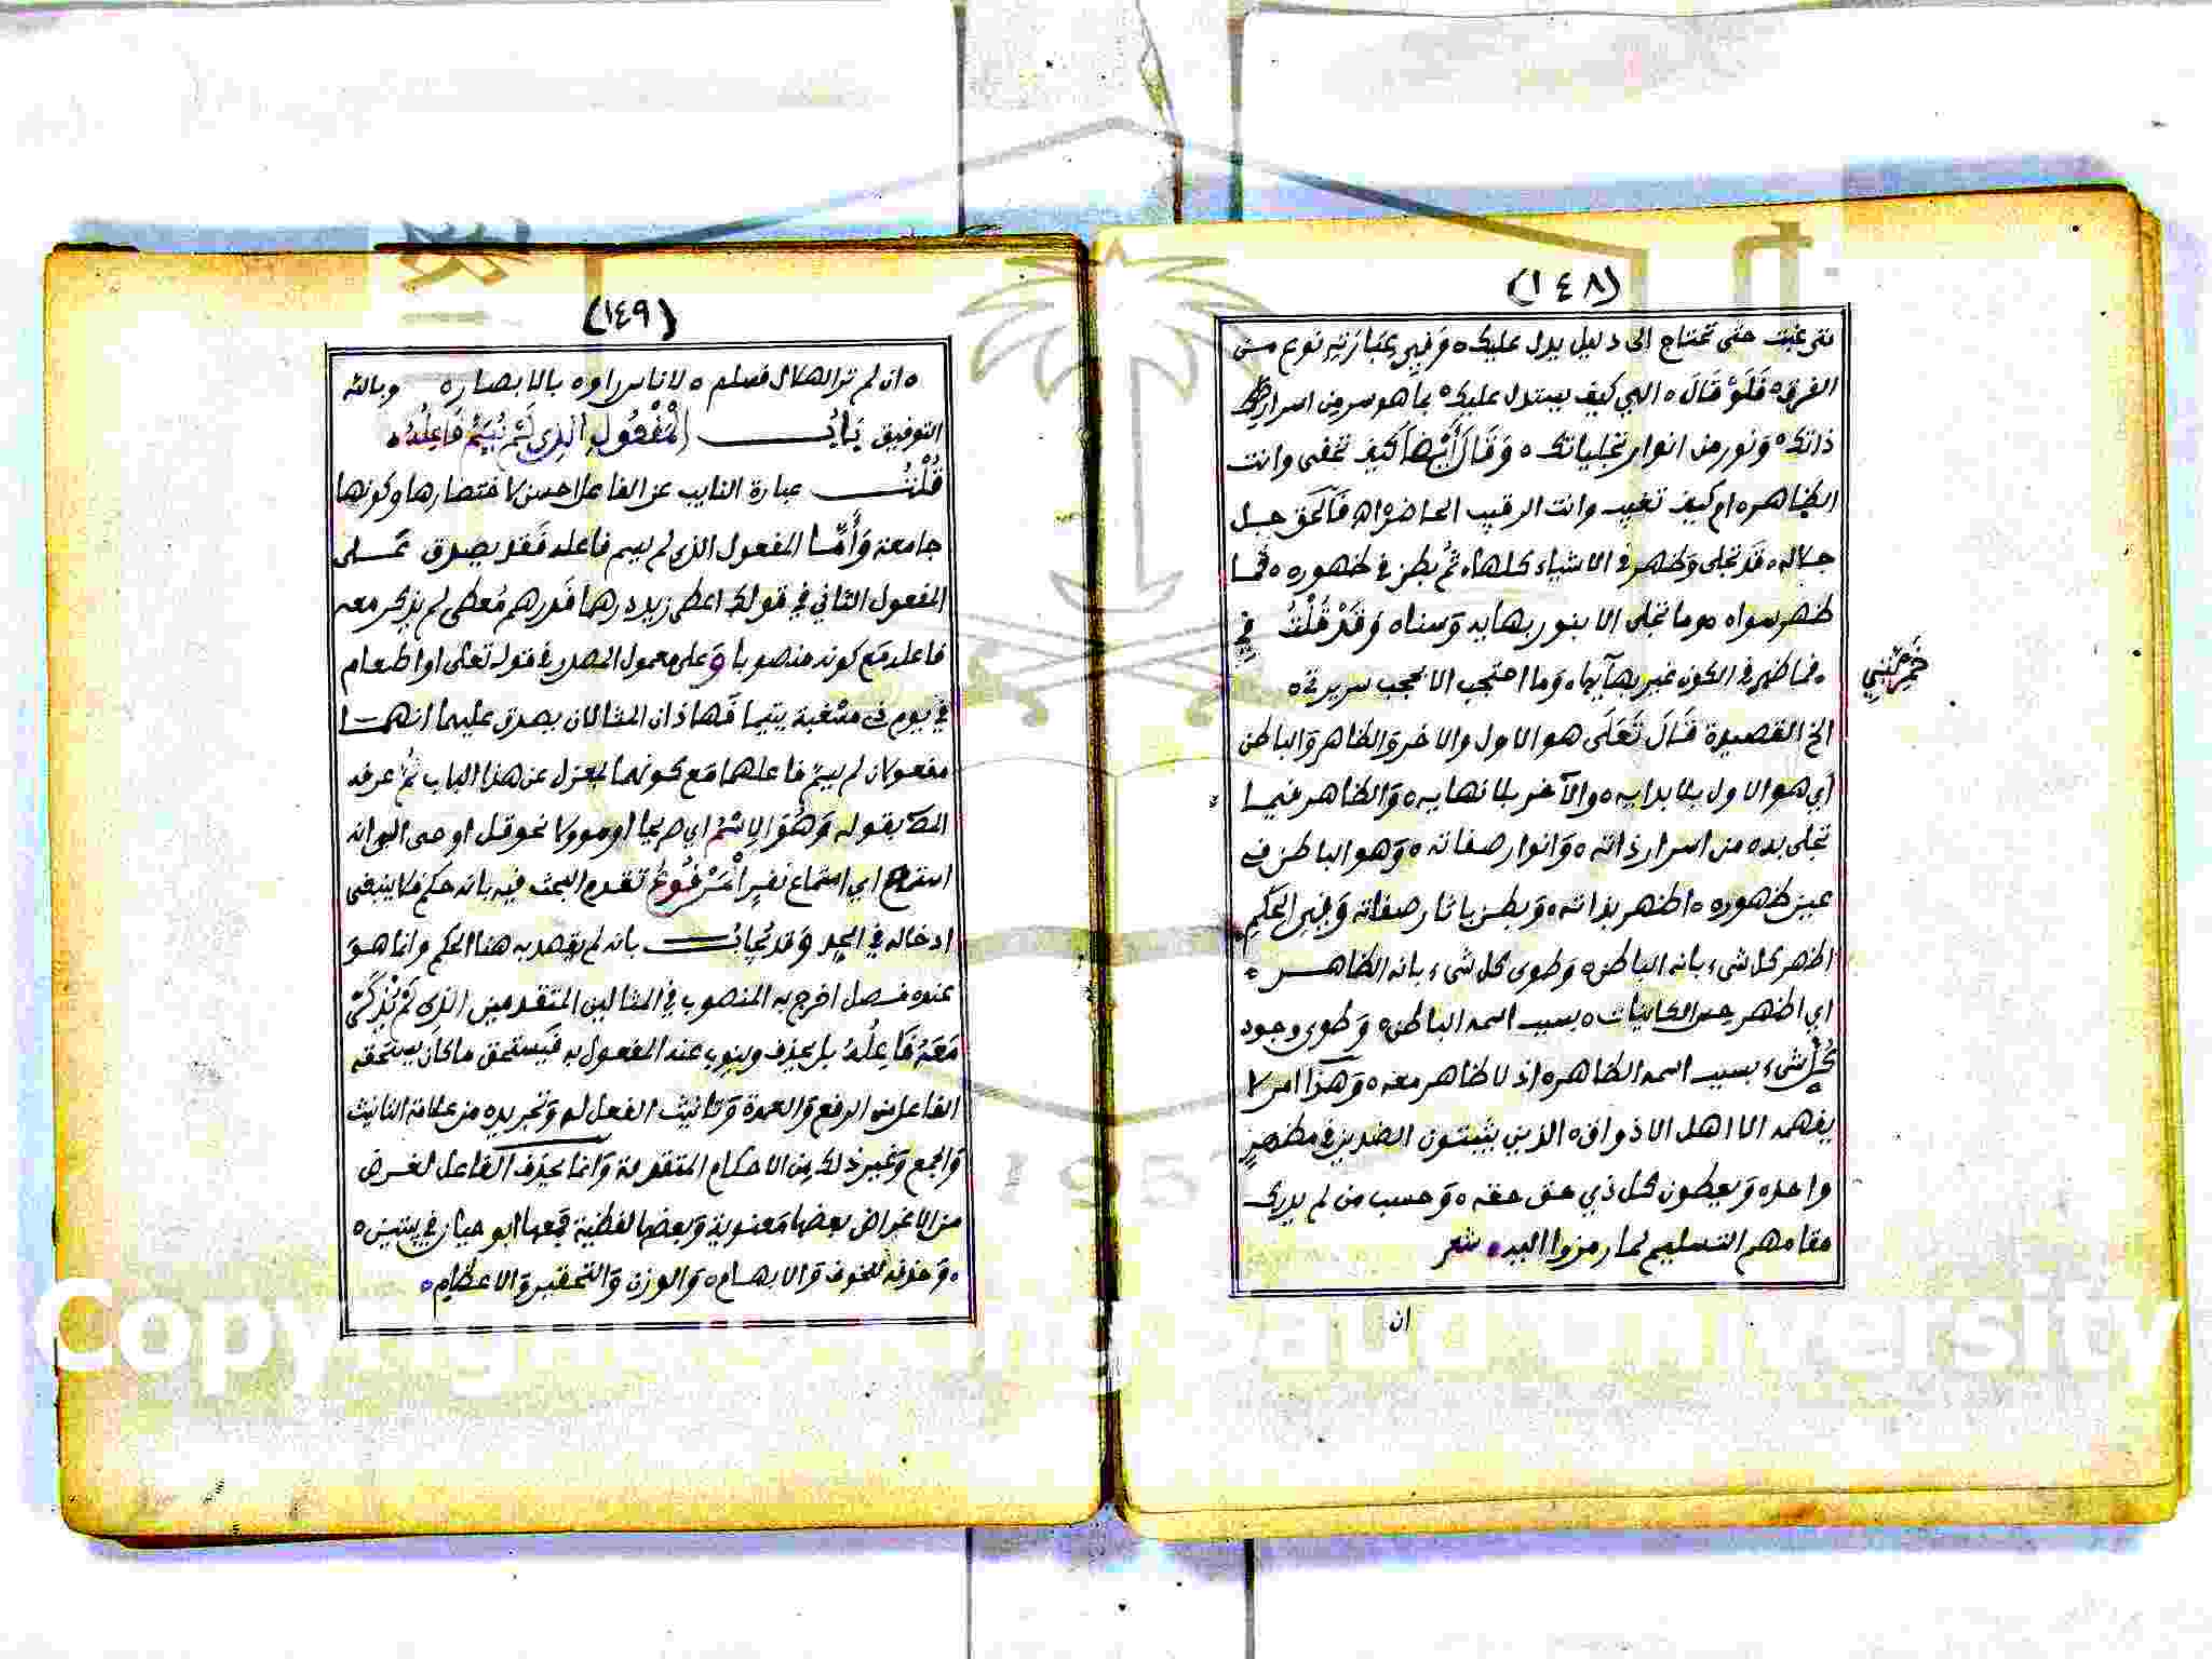 (١٤٨)
متى غبت حتى تحتاج الى دليل يدل عليك ه وَفِي عِبَارَتِهِ نوع من
الفرق ه فَلَوْ قَالَ ه الهي كيف يستدل عليك ه بما هو سر من اسرار
ذاتك ه وَنور من انوار تجلياتك ه وَقَالَ أَيْضاً كيف تخفى وانت
الظاهر ه ام كيف تغيب وانت الرقيب الحاضر اه فَالحَق جل
جلاله ه قد تجلى وَظهر في الاشياء كلها ه ثُم بطن في ظهوره ه فما
ظهر سواه ه وما تجلى الا بنور بهايه وَسناه وَقَدْ قُلْتُ في
خَمْرِيَّتِي
ه فما ظهر في الكون غير بهآيها ه وَما احتجب الا لحجب سريرتي ه
الخ القصيدة قَالَ تَعَالَى هو الاول والاخر وَالظاهر وَالباطن
أي هو الاول بلا بدايه ه والآخر بلا نهايه ه وَالظاهر فيما
تجلى به ه من اسرار ذاته ه وَانوار صفاته ه وَهو الباطن في
عين ظهوره ه اظهر بذاته ه وَبطن باثار صفاته وَفي الحكم
اظهر كل شيء بانه الباطن ه وَطوى كل شيء بانه الظاهر ه
اي اظهر حس الكائنات ه بسبب اسمه الباطن ه وَطوى وجود
كُلّ شيء بسبب اسمه الظاهر ه اذ لا ظاهر معه ه وَهذا امر لا
يفهمه الا اهل الاذواق ه الذين يثبتون الضدين في مظهر
واحد ه وَيعطون كل ذي حق حقه ه وَحسب من لم يدرك
مقامهم التسليم لما رمزوا اليه ه شعر
ان
(١٤٩)
ه ان لم تر الهلال فسلم ه لاناس راوه بالابصار ه وبالله
التوفيق بَابُ المَفْعُولِ الذِي لَمْ يُسَمَّ فَاعِلُهُ ه
قُلْتُ عبارة النايب عن الفاعل احسن لاختصارها وكونها
جامعة وَأَمَّا المفعول الذي لم يسم فاعله فَقد يصدق عَلى
المفعول الثاني في قولك اعطى زيد درهما فَدرهم مُعطى لم يذكر معه
فاعله مَع كونه منصوبا وَعلى معمول المصدر في قوله تعالى او اطعام
في يوم ذي مسغبة يتيما فَهاذان المثالان يصدق عليهما انهما
مفعولان لم يسم فاعلهما مَع كونهما بمعزل عن هذا الباب ثُم عرفه
المص بقوله وَهُوَ الاِسْمُ اي صريحا او موولا نحو قل اوحى الي انه
استمع اي استماع نفر المَرْفُوعُ تقدم البحث فيه بانه حكم فلا ينبغى
ادخاله في الحد وَقد يُجَابُ بانه لم يقصد به هنا الحكم وانما هوَ
عنده فصل اخرج به المنصوب في المثالين المتقدمين الذِي لَمْ يُذْكَرْ
مَعَهُ فَاعِلُهُ بل يحذف وينوب عنه المفعول به فَيستحق ما كان يستحقه
الفاعل من الرفع وَالعمدة وَتانيث الفعل له وَتجريده من علامة التانيث
وَالجمع وَغير ذلك من الاحكام المتقدمة وَانما يحذف الفاعل لغرض
من الاغراض بعضها مَعنوية وَبعضها لفظية جمَعها ابو حيان في بيتين ه
ه وَحذفه للخوف وَالابهام ه وَالوزن وَالتحقير وَالاعظام ه
Copyright © King Saud University
1957